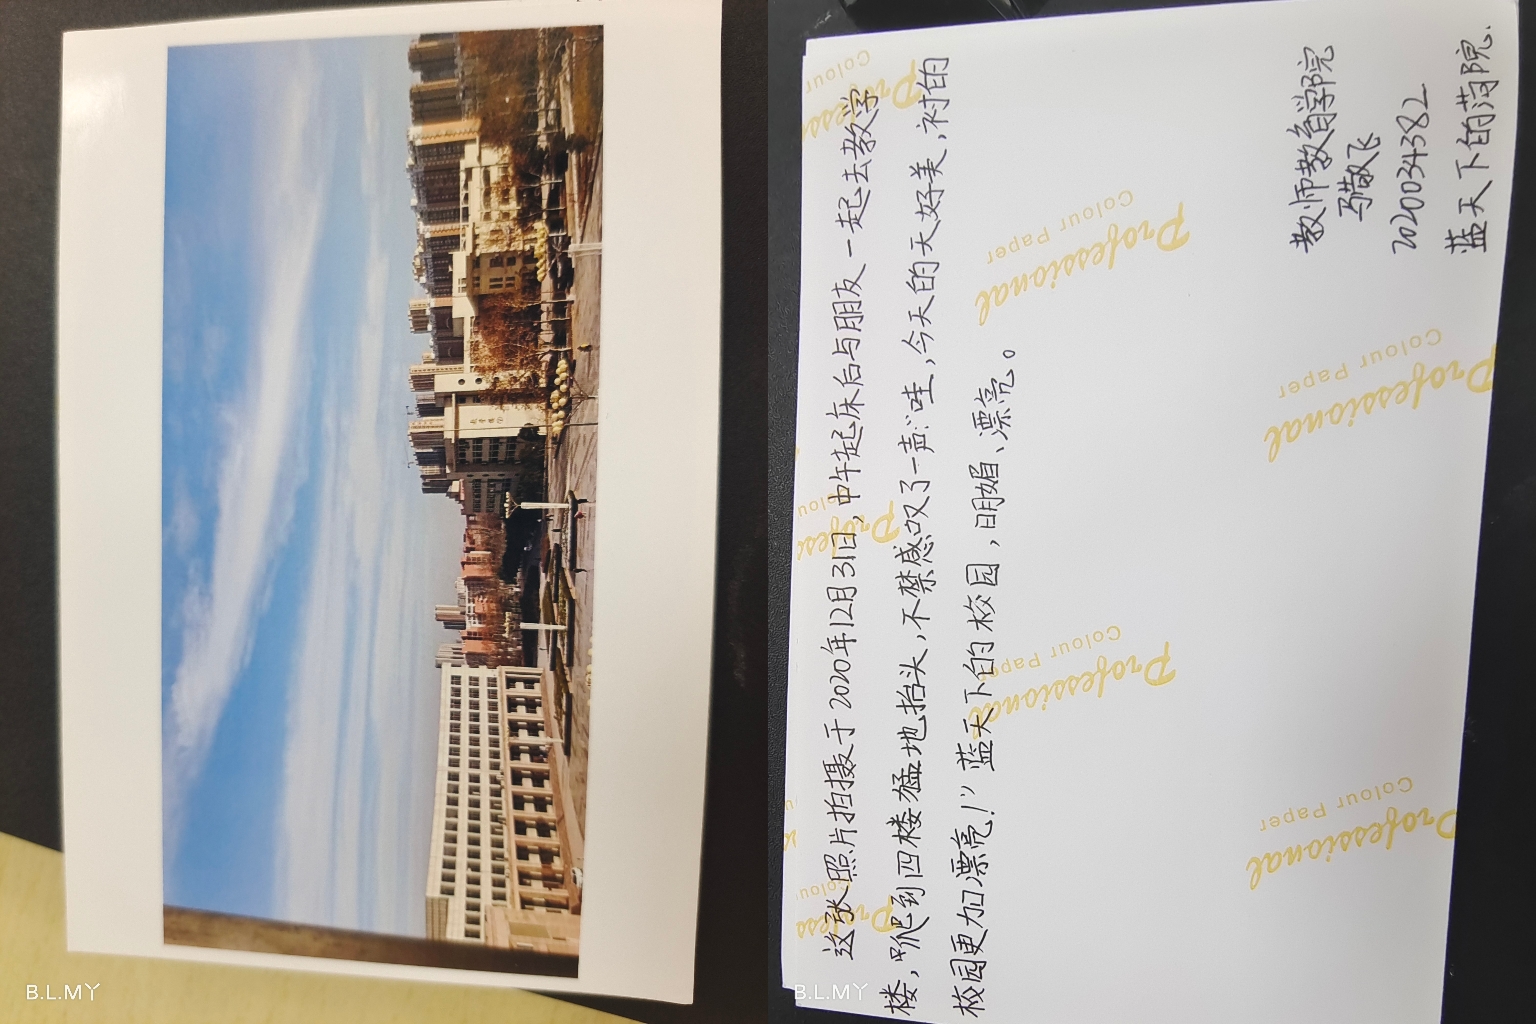 这张照片拍摄于2020年12月31日,中午起床后与朋友一起去教学
楼,爬到四楼猛地抬头,不禁感叹了一声:“哇,今天的天好美,衬的
校园更加漂亮!”蓝天下的校园,明媚、漂亮。
教师教育学院
马敬飞
2020034382
蓝天下的菏院.
Professional
Colour Paper
Professional
Colour Paper
Professional
Colour Paper
Professional
Colour Paper
B.L.MY
B.L.MY